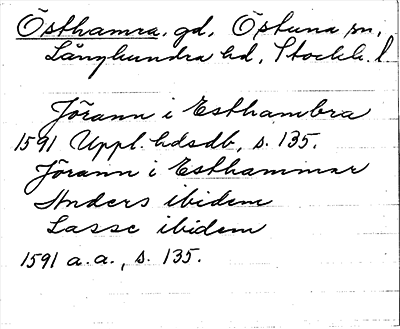 Östhamra, gd, Östuna sn,
Långhundra hd, Stockh. l
Jörann i Esthambra
1591 Uppl. hdsdb, s. 135.
Jörann i Esthammar
Anders ibidem
Lasse ibidem
1591 a.a., s. 135.